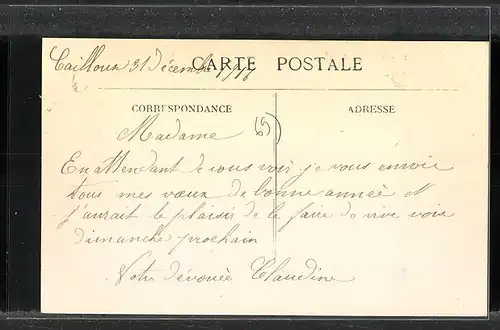 Cailloux 31 Décembre 1916
CARTE POSTALE
CORRESPONDANCE
ADRESSE
Madame
69
En attendant de vous voir je vous envoie
tous mes vœux de bonne année et
j'aurait le plaisir de le faire de vive voix
dimanche prochain
Votre dévouée Claudine